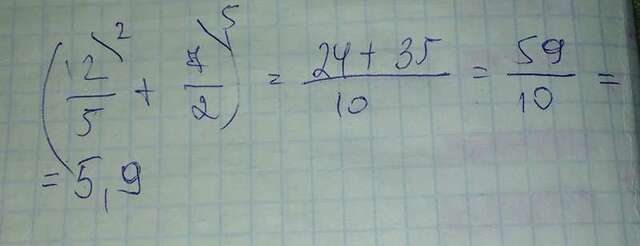 (12/5 \2 + 7/2 \5) = 24 + 35/10 = 59/10 =
= 5,9